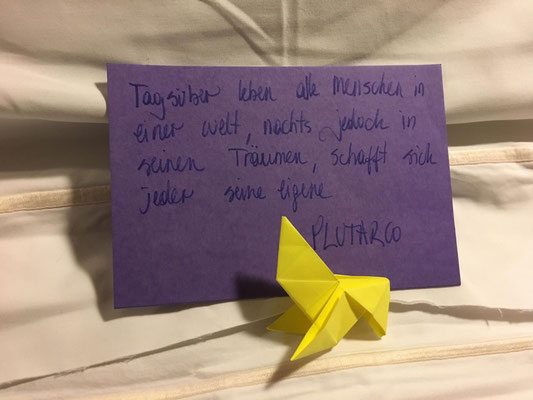 Tagsüber leben alle Menschen in
einer welt, nachts jedoch in
seinen Träumen, schafft sich
jeder seine eigene
PLUTARCO